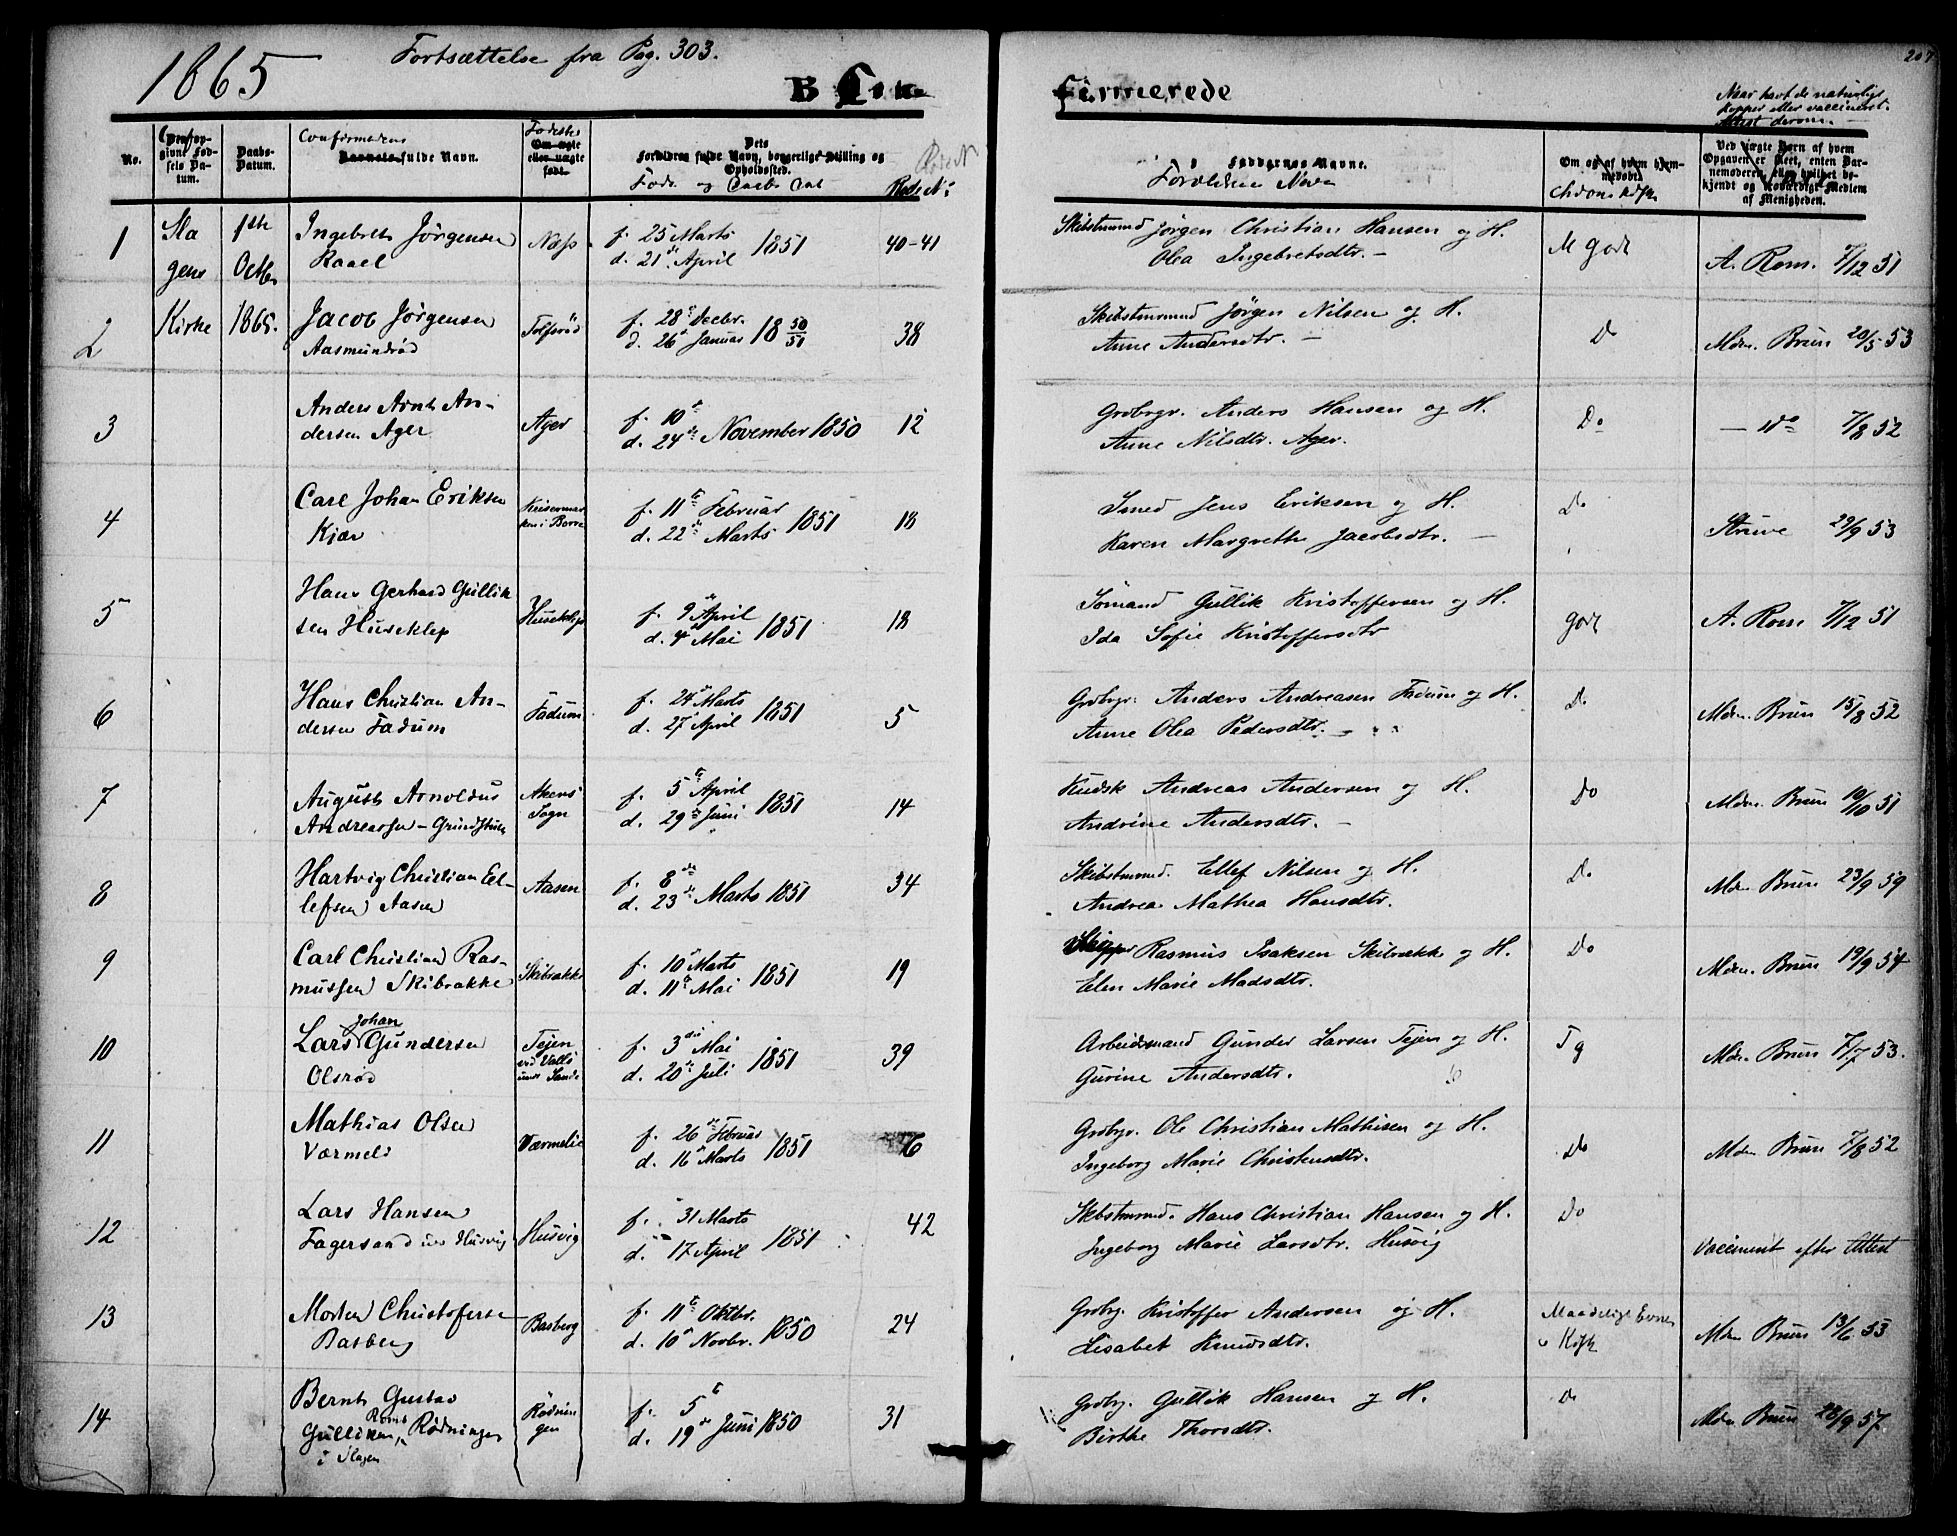 1865
Fortsættelse fra Pag. 303.
Confirmerede
207
No.
Confirmandens
fulde Navn.
Daabs-Datum.
Fødested
Forældres fulde Navn, borgerlige Stilling og Opholdssted.
Føds. og Daabs Dat
Faddernes Navne.
Forældrenes Navne
Naar havt de naturlige
Kopper eller vaccineret.
Attest derom.
1
Slagens Kirke
1ste Octbr 1865.
Ingebret Jørgensen
Raael
Næss
f. 25 Marts
d. 21 April 1851
40-41
Skibstmmd Jørgen Christian Hansen og H.
Olea Ingebretsdtr. -
M godt
A. Rom. 7/12 51
2
Jacob Jørgensen
Aasmundrød
Tolfsrød
f. 28 Decbr.
d. 26 Januar 18 50/51
38
Skibstmrmd Jørgen Nilsen og H.
Anne Andersdtr. -
Do
Mdm. Brun 20/5 53
3
Anders Arnt An-
dersen Ager
Ager
f. 10
d. 24 November 1850
12
Grdbrgr. Anders Hansen og H.
Anne Nilsdtr. Ager.
Do
- do 7/8 52
4
Carl Johan Eriksen
Kjær
f. 11te Februar
d. 22 Marts 1851
18
Smed Jens Eriksen og H.
Karen Margrethe Jacobsdtr. -
Do
Struve 29/9 53
5
Hans Gerhard Gullik
sen Huseklep
Huseklep
f. 9 April
d. 4 Mai 1851
18
Sømand Gullik Kristoffersen og H.
Ida Sofie Kristoffersdtr
godt
A. Rom 7/12 51
6
Hans Christian An-
dersen Fadum
Fadum
f. 24 Marts
d. 27 April 1851
5
Grdbgr. Anders Andreasen Fadum og H.
Anne Olea Pedersdtr. -
Do
Mdm. Brun 15/8 52
7
August Arnoldus
Andreassen -
Akers
Sogn
f. 5te April
d. 29 Juni 1851
14
Kudsk Andreas Andersen og H.
Andrine Andersdtr. -
Do
Mdm. Brun 10/10 51
8
Hartvig Christian El-
lefsen Aasen
Aasen
f. 8de
d. 23de Marts 1851
34
Skibstmrmd. Ellef Nilsen og H.
Andrea Mathea Hansdtr.
Do
Mdm Brun 23/9 59
9
Carl Christian Ras-
mussen Skibrakke
Skibrakke
f. 10 Marts
d. 11 Mai 1851
19
Skipper Rasmus Isaksen Skibrakke og H.
Elen Marie Madsdtr.
Do
Mdm. Brun 19/9 54
10
Lars Johan Gundersen
Olsrød
Tejen
ved Vallø
f. 3die Mai
d. 20de Juli 1851
39
Arbeidsmand Gunder Larsen Tejen og H.
Gurine Andersdtr.
Tg
Mdm. Brun 7/7 53.
11
Mathias Olsen
Værmeli
Værmelie
f. 26 Februar
d. 16 Marts 1851
6
Grdbgr. Ole Christian Mathisen og H.
Ingeborg Marie Christensdtr.
Do
Mdm Brun 7/8 52
12
Lars Hansen
Fagersand Husvig
Husvig
f. 31 Marts
d. 17 April 1851
42
Skibstmrmd. Hans Christian Hansen og H.
Ingeborg Marie Larsdtr. Husvig
Do
Vaccineret efter Attest
13
Morten Christofersen
Basberg
Basberg
f. 11te Oktbr.
d. 10 Novbr. 1850
24
Grdbrg. Kristoffer Andersen og H.
Lisabet Knudsdtr.
Maadelige Evner
Mdm Brun 13/6 53
14
Bernt Gustav
Gulliksen, Rødningen
i Slagen
Rødnin
gen
f. 5te
d. 19de Juni 1850
31
Grdbrg. Gullik Hansen og H.
Birthe Thorsdtr.
Do
Mdm Brun 28/9 57.